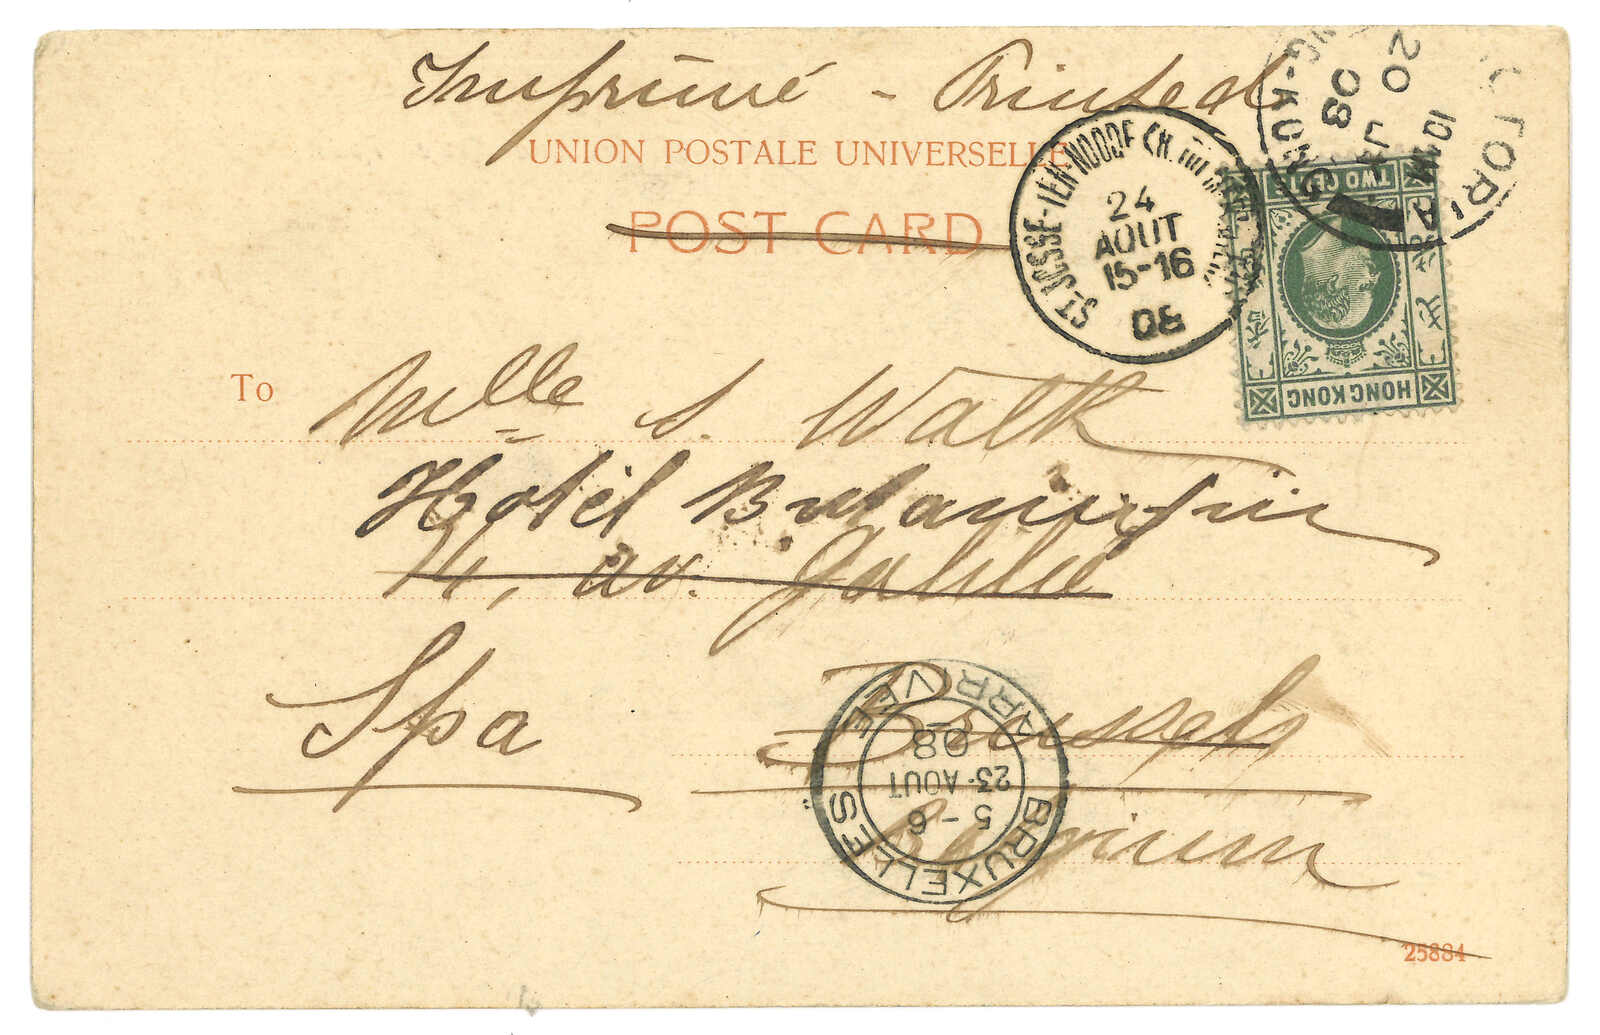 Imprimé - Printed
UNION POSTALE UNIVERSELLE
POST CARD
ST. JOSSE-TEN-NOODE
24
AOUT
15-16
08
VICTORIA
HONG-KONG
10
20 JY
08
TWO CENTS
HONG KONG
To
Mlle S. Walk
Hotel
14, av. Galilée
Spa
Brussels
Belgium
BRUXELLES
ARRIVEE
5-6
23-AOUT
08
25884